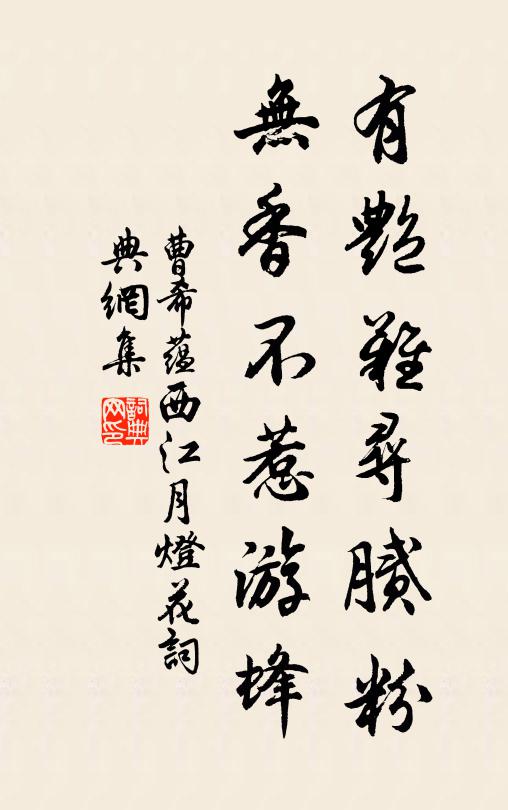 有艷難尋膩粉
無香不惹游蜂
曹希蕴西江月燈花詞
典網集
詞典
网印